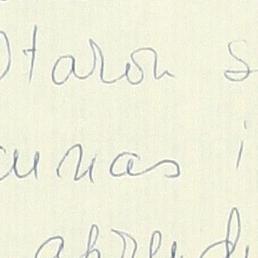 otaron s
unas i
aprend